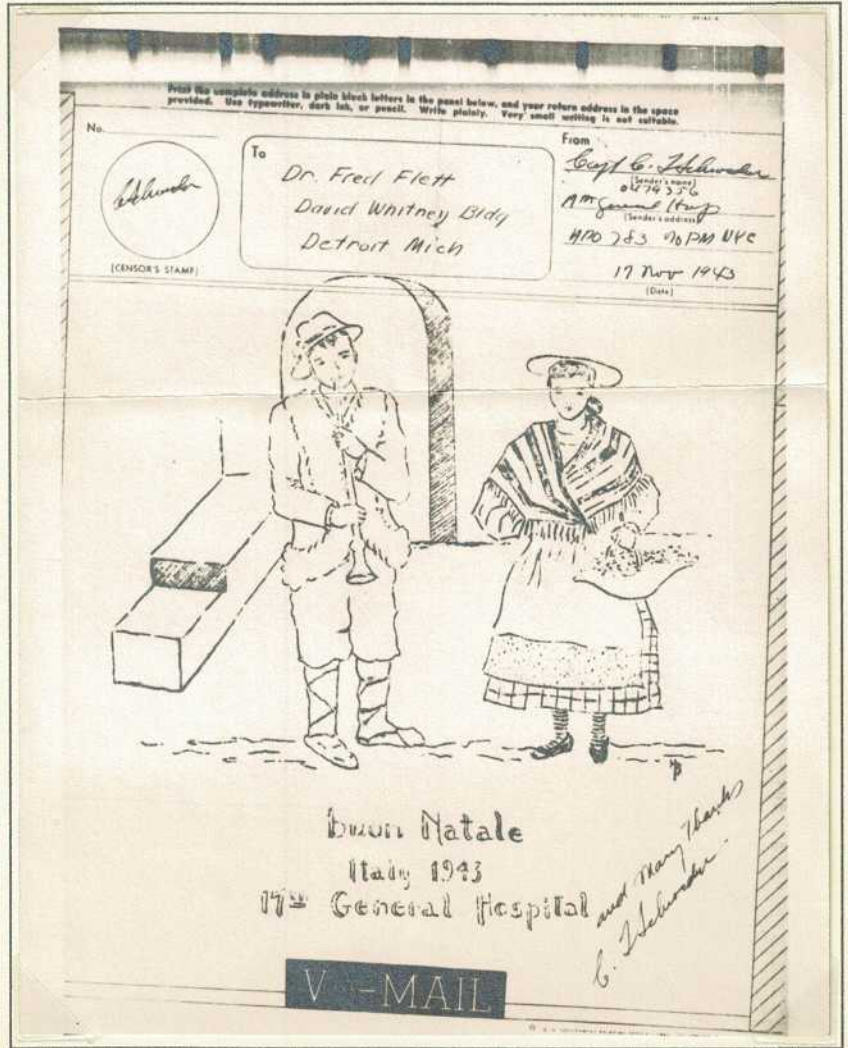 Print the complete address in plain block letters in the panel below, and your return address in the space
provided. Use typewriter, dark ink, or pencil. Write plainly. Very small writing is not suitable.
No.
(CENSOR'S STAMP)
To
Dr. Fred Flett
David Whitney Bldg
Detroit Mich
From
Capt C. F Schroeder
(Sender's name)
0479356
General Hosp
(Sender's address)
APO 783 % PM NYC
17 Nov 1943
(Date)
Buon Natale
Italy 1943
17th General Hospital
and Many Thanks
C. F Schroeder
V -MAIL